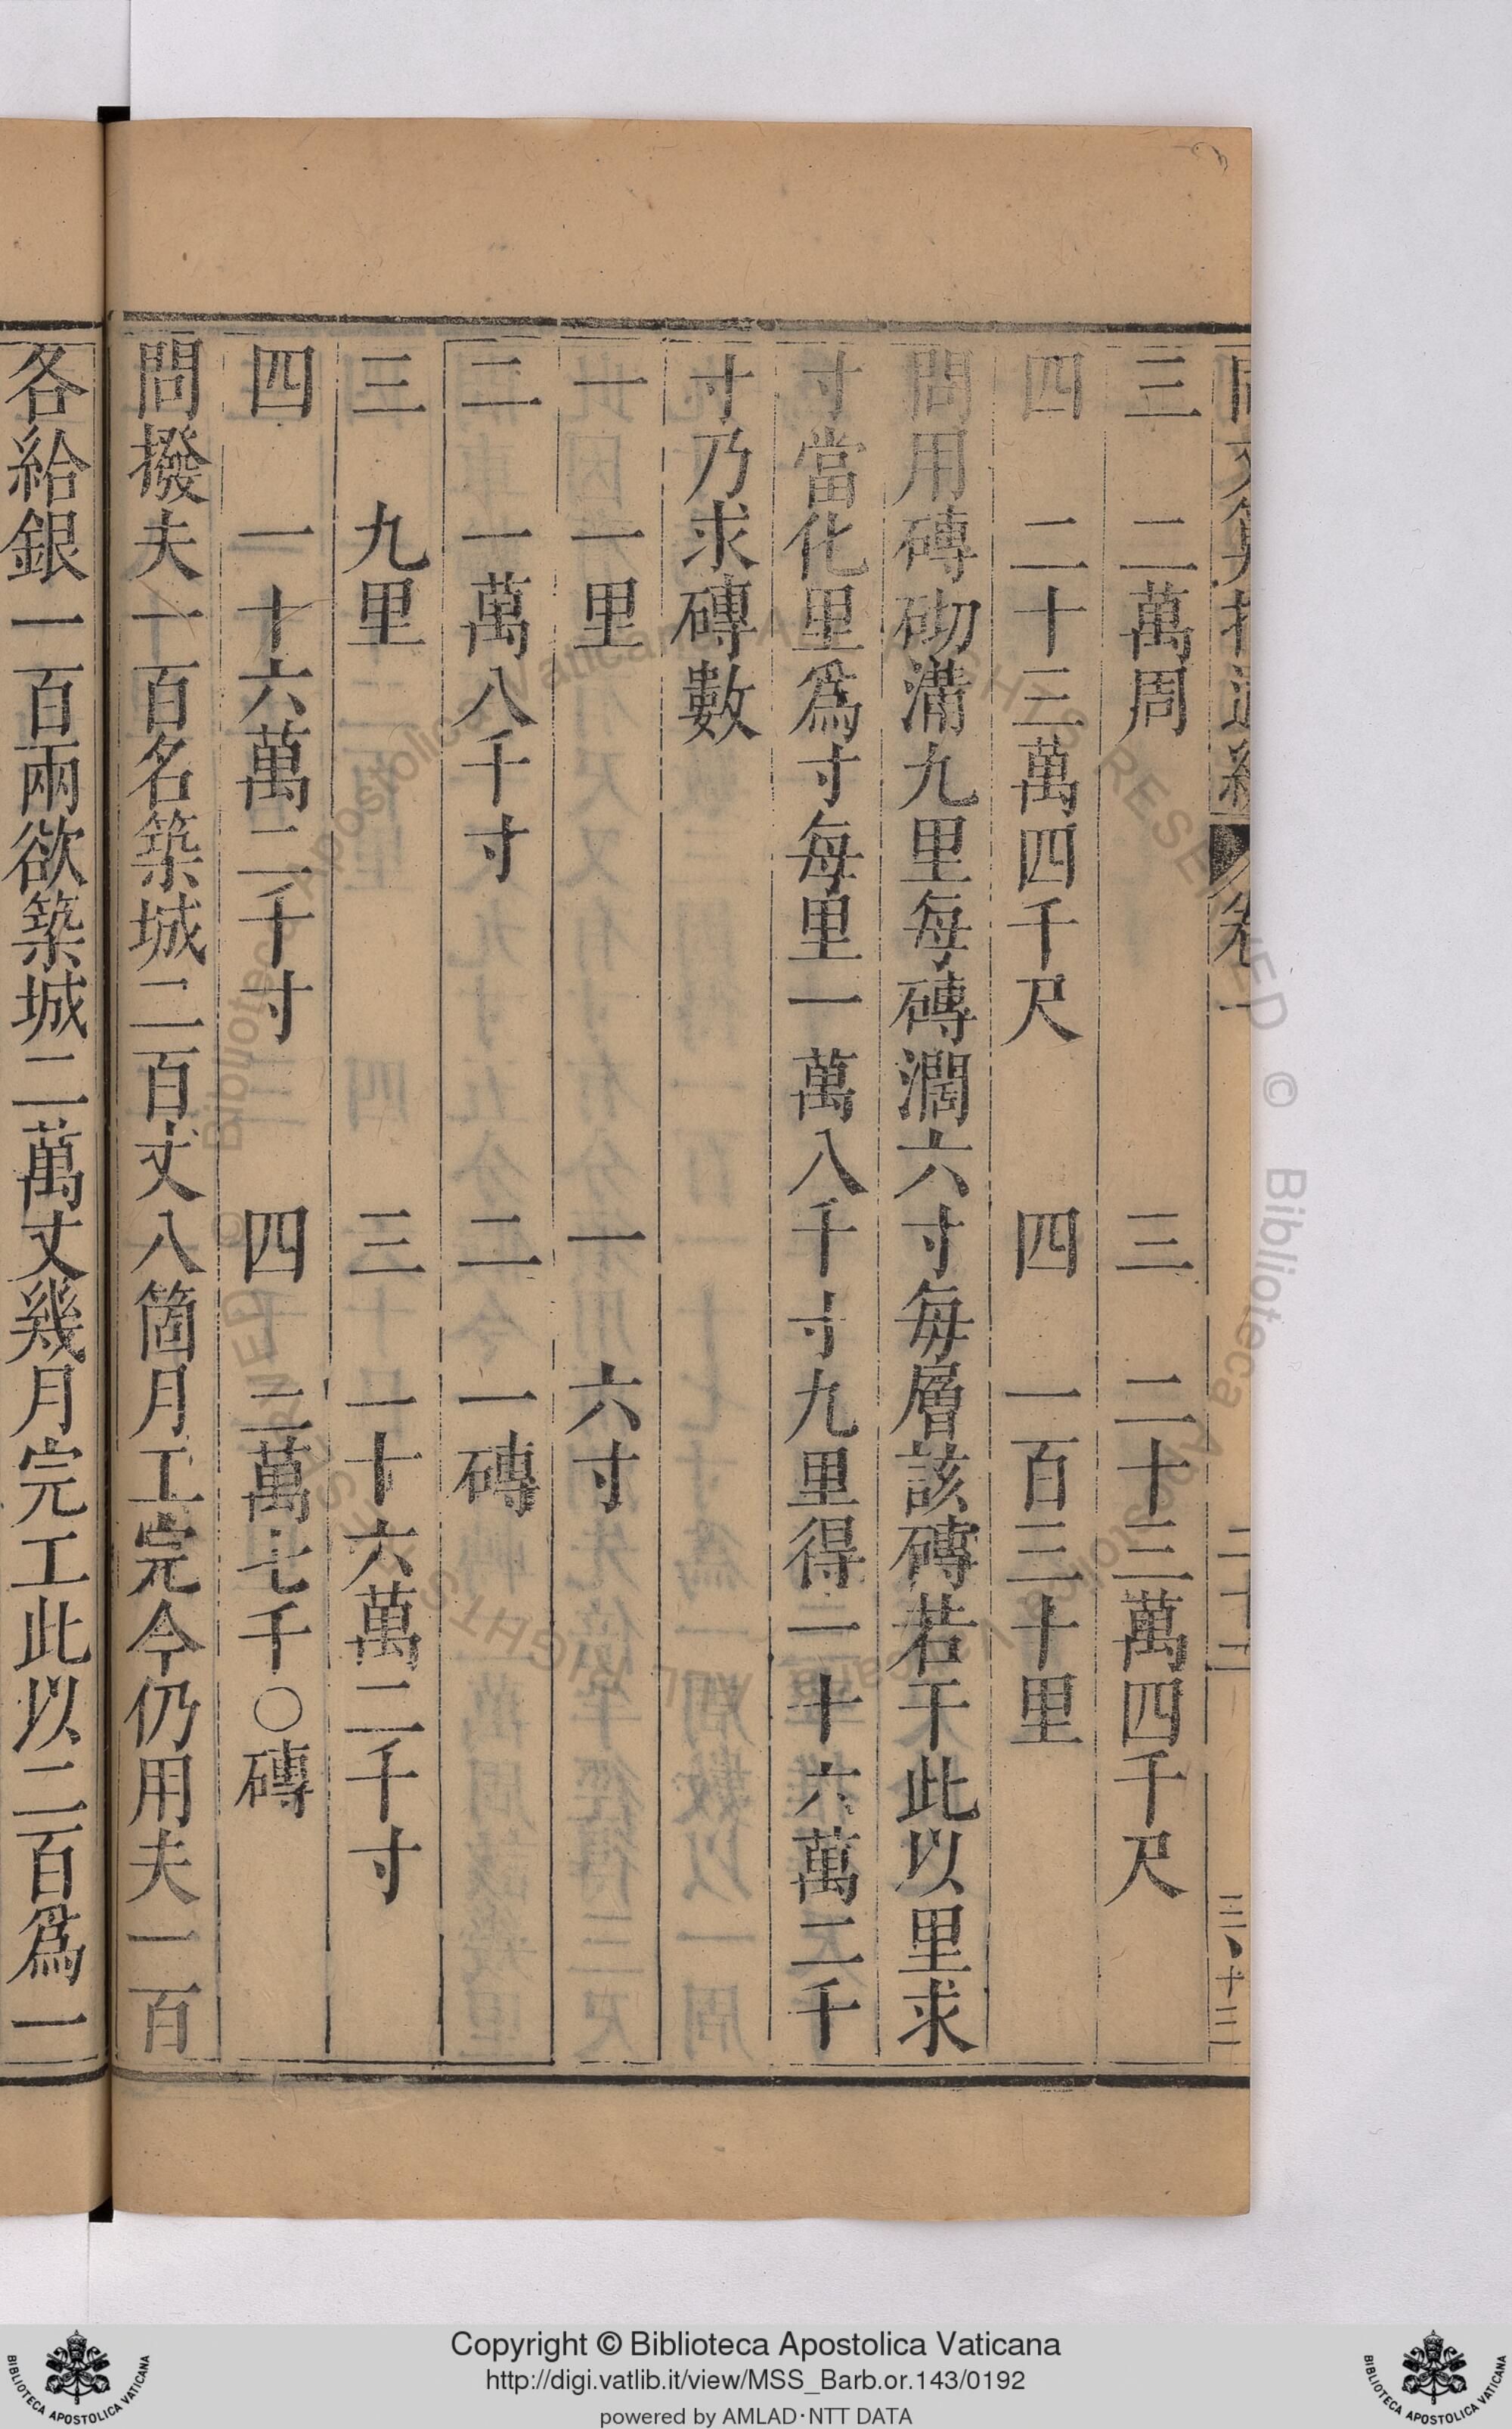 三　二萬周　三　二十三萬四千尺
四　二十三萬四千尺　四　一百三十里
問用磚砌溝九里每磚濶六寸每層該磚若干此以里求
寸當化里爲寸每里一萬八千寸九里得一十六萬二千
寸乃求磚數
一　一里　一　六寸
二　一萬八千寸　二　一磚
三　九里　三　一十六萬二千寸
四　一十六萬二千寸　四　二萬七千〇磚
問撥夫一百名築城二百丈八箇月工完今仍用夫一百
各給銀一百兩欲築城二萬丈幾月完工此以二百爲一
Copyright © Biblioteca Apostolica Vaticana
http://digi.vatlib.it/view/MSS_Barb.or.143/0192
powered by AMLAD·NTT DATA
BIBLIOTECA APOSTOLICA VATICANA
BIBLIOTECA APOSTOLICA VATICANA